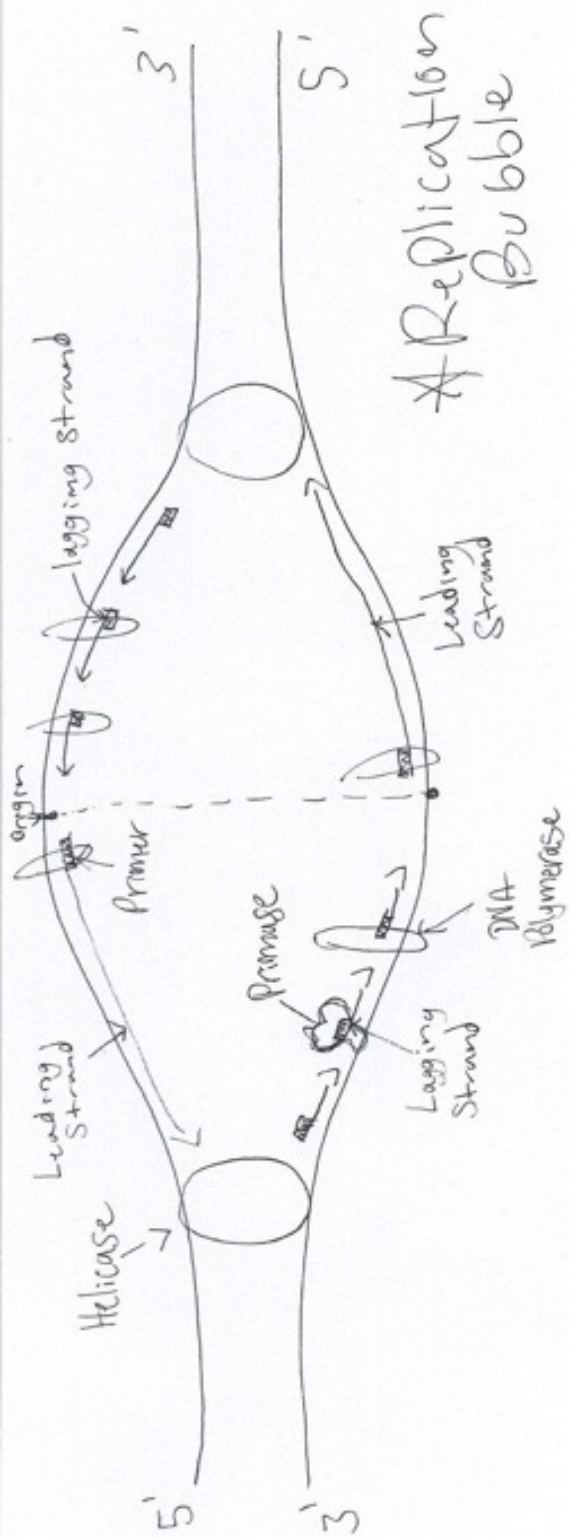 5'
3'
Helicase
Leading
Strand
Origin
lagging strand
Primer
Primase
Lagging
Strand
DNA
Polymerase
Leading
Strand
3'
5'
* Replication
Bubble